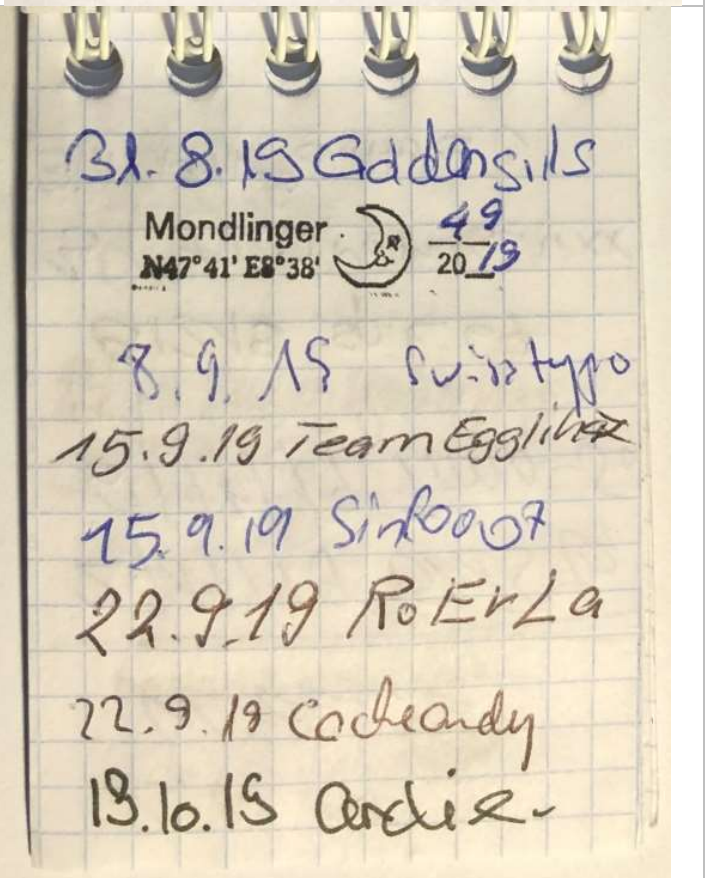 31.8.19 Gddensils
Mondlinger 49
N47°41' E8°38' 2019
8.9.19 swisstypo
15.9.19 Team Eggli
15.9.19 Sinfoo07
22.9.19 RoErLa
22.9.19 Cacheandy
19.10.19